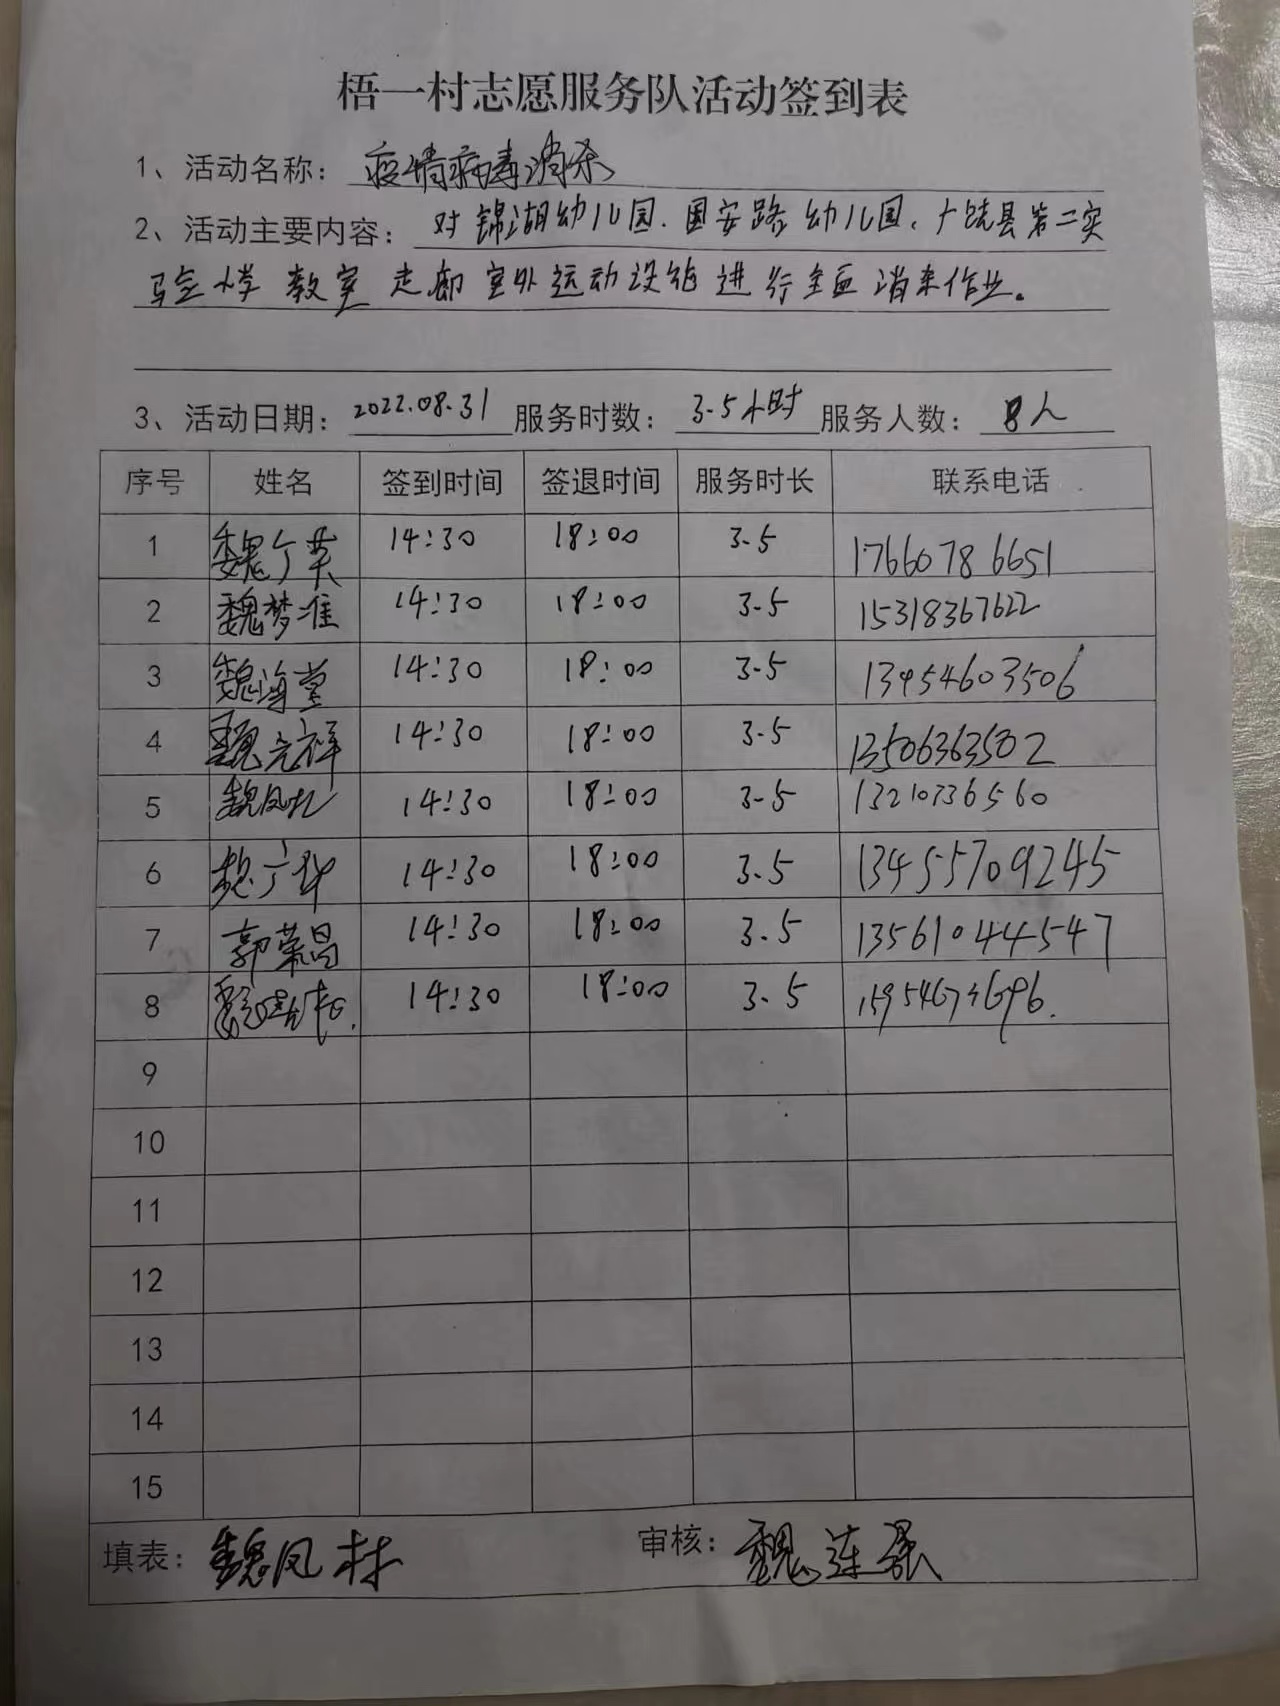 梧一村志愿服务队活动签到表
1、活动名称：疫情病毒消杀
2、活动主要内容：对锦湖幼儿园、国安路幼儿园、广饶县第二实
验小学 教室 走廊 室外运动设施 进行全面消杀作业。
3、活动日期：2022.08.31 服务时数：3.5小时 服务人数：8人
序号 姓名 签到时间 签退时间 服务时长 联系电话
1 魏广英 14:30 18:00 3.5 17660786651
2 魏梦准 14:30 18:00 3.5 15318367622
3 魏海堂 14:30 18:00 3.5 13954603506
4 魏元祥 14:30 18:00 3.5 13506363502
5 魏凤林 14:30 18:00 3.5 13210736560
6 魏广华 14:30 18:00 3.5 13455709245
7 郭荣昌 14:30 18:00 3.5 13561044547
8 14:30 18:00 3.5
9
10
11
12
13
14
15
填表：魏凤林 审核：魏连